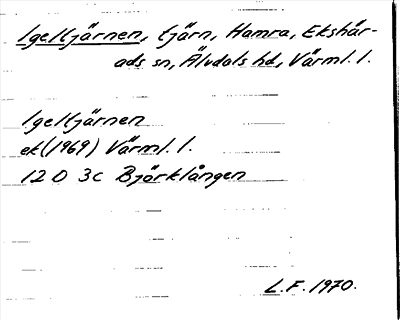 Igeltjärnen, tjärn, Hamra, Ekshär-
ads sn, Älvdals hd, Värml. l.
Igeltjärnen
ek (1969) Värml. l.
12 D 3c Björklången
L.F. 1970.